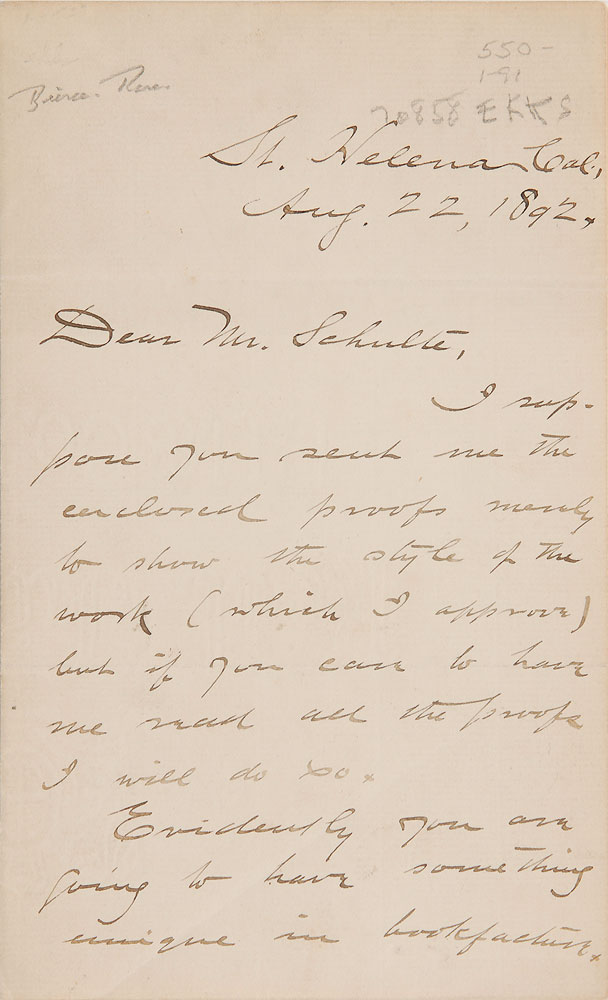 550-
1-91
Bierce
20858 EKKS
St. Helena, Cal.,
Aug. 22, 1892.
Dear Mr. Schulte,
I sup-
pose you sent me the
enclosed proofs merely
to show the style of the
work (which I approve)
but if you care to have
me read all the proofs
I will do so.
Evidently you are
going to have something
unique in bookfacture.